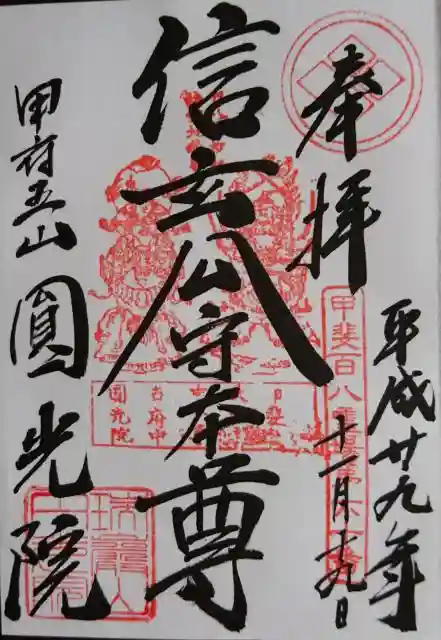 奉拝
平成廿九年
十一月十九日
信玄公守本尊
甲府五山 圓光院
甲斐百八霊場第
圓光院